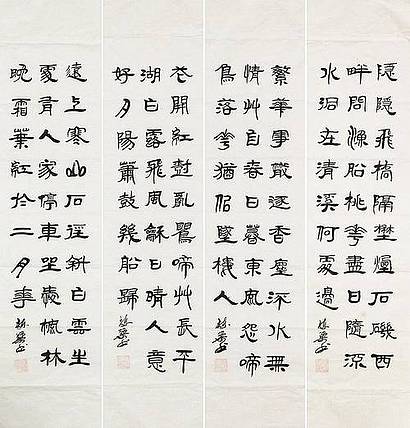 隱隱飛橋隔埜煙石磯西
畔問漁船桃花盡日隨流
水洞在清溪何處邊
繁華事散逐香塵流水無
情艸自春日暮東風怨啼
鳥落花猶侣墜樓人
花開紅樹亂鶯啼艸長平
湖白鷺飛風龢日晴人意
好夕陽簫鼓幾船歸
遠上寒山石徑斜白雲生
處有人家停車坐愛楓林
晚霜葉紅於二月花